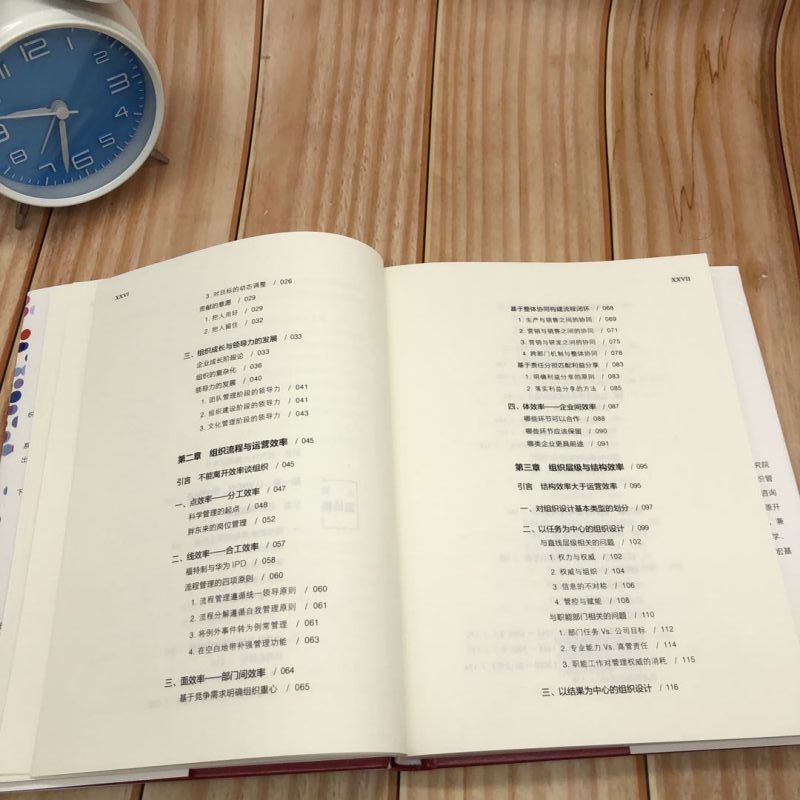 12
1
2
3
4
5
6
7
8
9
XXVI
3. 对目标的动态调整 / 026
贡献的意愿 / 029
1. 把人用好 / 029
2. 把人留住 / 032
三、组织成长与领导力的发展 / 033
企业成长阶段论 / 033
组织的复杂化 / 036
领导力的发展 / 040
1. 团队管理阶段的领导力 / 041
2. 组织建设阶段的领导力 / 041
3. 文化管理阶段的领导力 / 043
第二章 组织流程与运营效率 / 045
引言 不能离开效率谈组织 / 045
一、点效率——分工效率 / 047
科学管理的起点 / 048
胖东来的岗位管理 / 052
二、线效率——合工效率 / 057
福特制与华为 IPD / 058
流程管理的四项原则 / 060
1. 流程管理遵循统一领导原则 / 060
2. 流程分解遵循自我管理原则 / 061
3. 将例外事件转为例常管理 / 061
4. 在空白地带补强管理功能 / 063
三、面效率——部门间效率 / 064
基于竞争需求明确组织重心 / 065
XXVII
基于整体协同构建流程闭环 / 068
1. 生产与销售之间的协同 / 069
2. 营销与销售之间的协同 / 071
3. 营销与研发之间的协同 / 075
4. 跨部门机制与整体协同 / 078
基于责任分担匹配利益分享 / 083
1. 明确利益分享的原则 / 083
2. 落实利益分享的方法 / 085
四、体效率——企业间效率 / 087
哪些环节可以合作 / 088
哪些环节应该保留 / 090
哪类企业更具前途 / 091
第三章 组织层级与结构效率 / 095
引言 结构效率大于运营效率 / 095
一、对组织设计基本类型的划分 / 097
二、以任务为中心的组织设计 / 099
与直线层级相关的问题 / 102
1. 权力与权威 / 102
2. 权威与组织 / 104
3. 信息的不对称 / 106
4. 管控与赋能 / 108
与职能部门相关的问题 / 110
1. 部门任务 Vs. 公司目标 / 112
2. 专业能力 Vs. 高管责任 / 114
3. 职能工作对管理权威的消耗 / 115
三、以结果为中心的组织设计 / 116
究院
织管
咨询
善开
，兼
学、
宏基